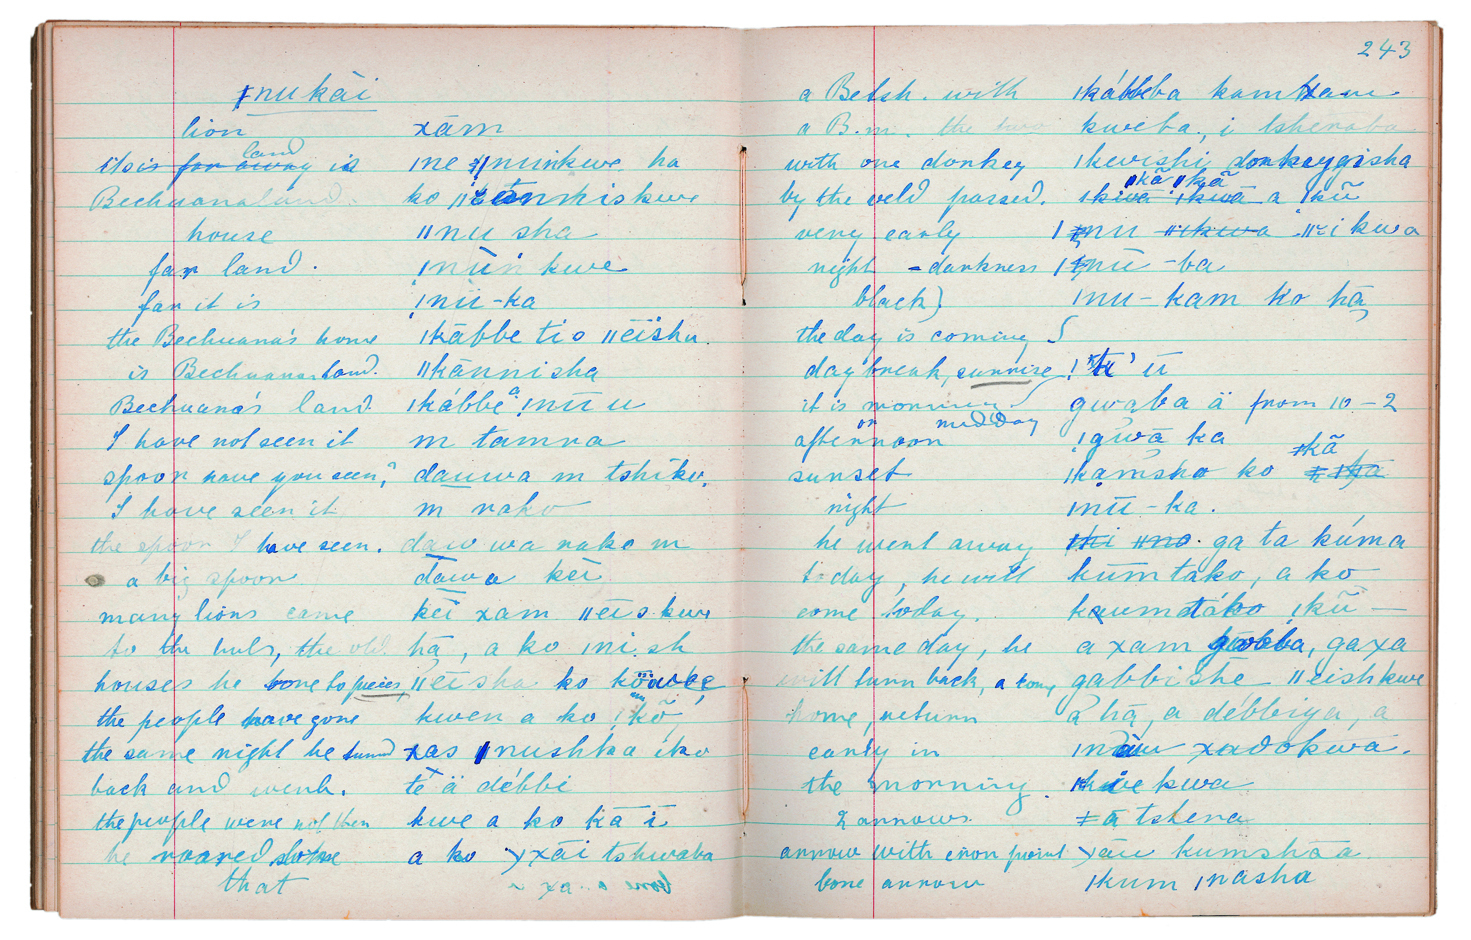 ǂnu kài
lion xām
it is far away land is ǀne ǁnuinkwe ha
Bechuanaland. ko
house ǁnu sha
far land. ǃnūn kwe
far it is ǃnū-ka
the Bechuana's home ǀkābbe ti o ǁēishu.
is Bechuanaland. ǁkānnisha
Bechuana's land. ǀkábbe a ǃnū u
I have not seen it m tamna
spoon have you seen? dauwa m tshiko.
I have seen it m nako
the spoon I have seen. daw wa nake m
a big spoon dawa kēi
many lions came kēi xam ǁēis kwe
to the huts, the old hā, a ko ǀni sh
houses he bone to pieces ǁēisha ko
the people have gone kwen a ko ǃkõ
the same night he turned xas ǀnushka iko
back and went. tē ä débbi
the people were not then kwe a ko kā ī
he roared a ko yxāi tshwaba
that
243
a Betsh. with ǀkábbeba kam
a B.m. the two kweba, i tshenaba
with one donkey ǀkevishi donkeygisha
by the veld passed. ǀkã ǀkã a ǀkū
very early ǀ ǂnu kwa
night - darkness ǀ ǂnū-ba
black) ǀnu-kam ko hā
the day is coming
daybreak, sunrise ū
it is morning gwaba ä from 10-2
afternoon or midday ǃgwā ka
sunset ǀkamsha ko ǂkã
night ǀnū-ka.
he went away ga ta kúma
today, he will kūmtako, a ko
come today. kaumtáko ǀkū —
the same day, he a xam gabba, gaxa
will turn back, a come gabbi shē ǁeishkwe
home, return ā hā, a débbiya, a
early in xadokwa.
the morning. kwa
2 arrows ǂā tshena
arrow with iron point yāu kumshāa
bone arrow ǀkum ǀnāsha